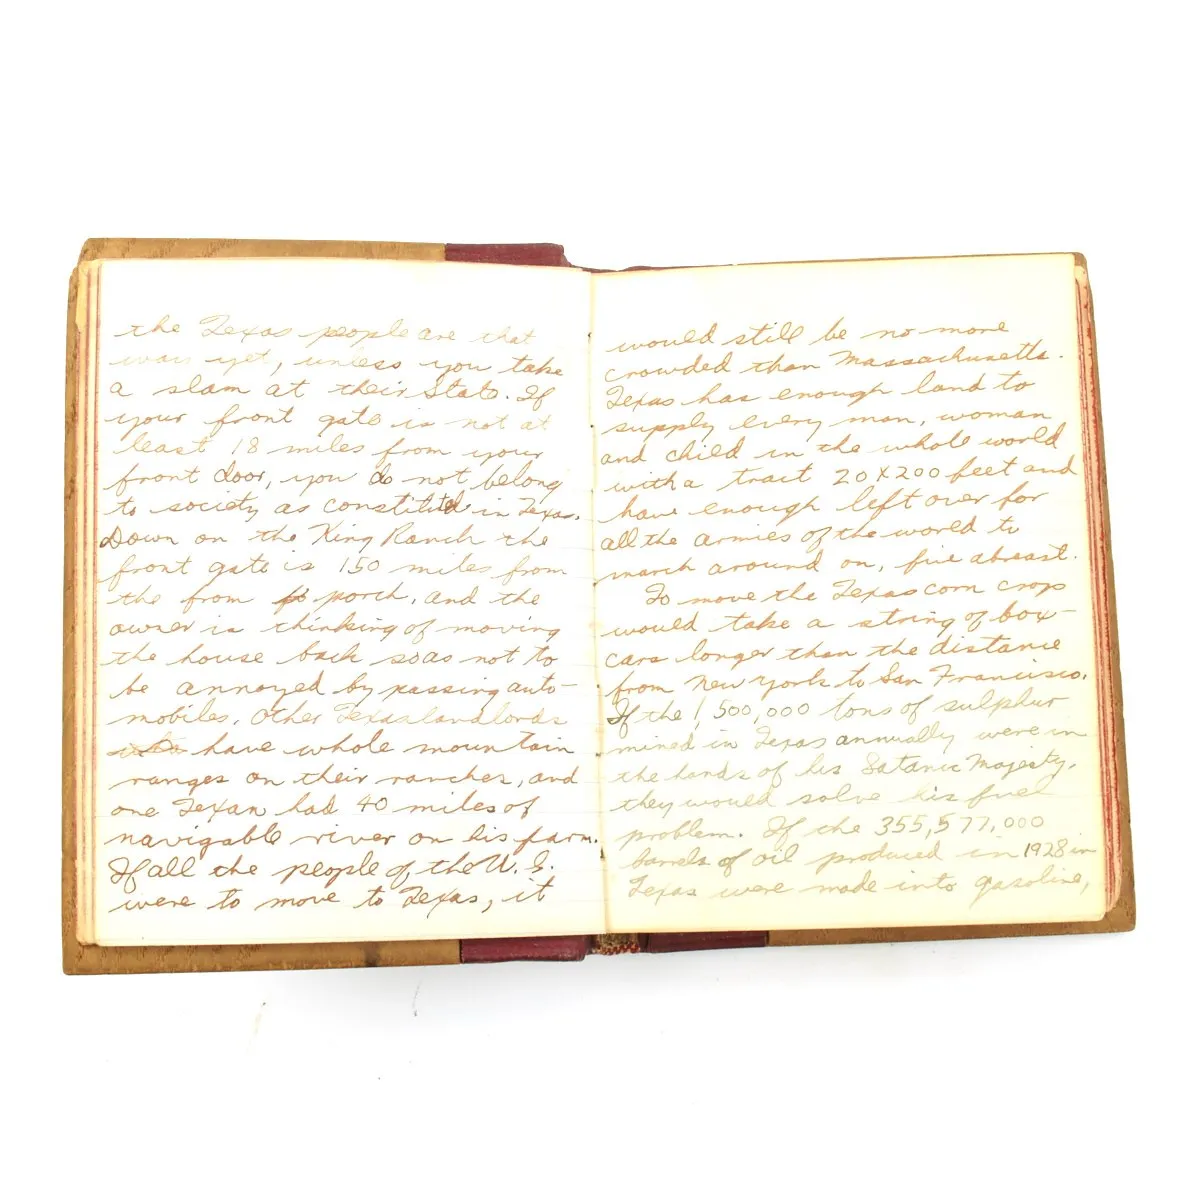 the Texas people are that
way yet, unless you take
a slam at their State. If
your front gate is not at
least 18 miles from your
front door, you do not belong
to society as constituted in Texas.
Down on the King Ranch the
front gate is 150 miles from
the from porch, and the
owner is thinking of moving
the house back so as not to
be annoyed by passing auto-
mobiles. Other Texas landlords
have whole mountain
ranges on their ranches, and
one Texan had 40 miles of
navigable river on his farm.
If all the people of the U. S.
were to move to Texas, it
would still be no more
crowded than Massachusetts.
Texas has enough land to
supply every man, woman
and child in the whole world
with a tract 20 X 200 feet and
have enough left over for
all the armies of the world to
march around on, five abreast.
To move the Texas corn crop
would take a string of box-
cars longer than the distance
from New York to San Francisco.
If the 1,500,000 tons of sulphur
mined in Texas annually were in
the hands of his Satanic Majesty,
they would solve his fuel
problem. If the 355,577,000
barrels of oil produced in 1928 in
Texas were made into gasoline,